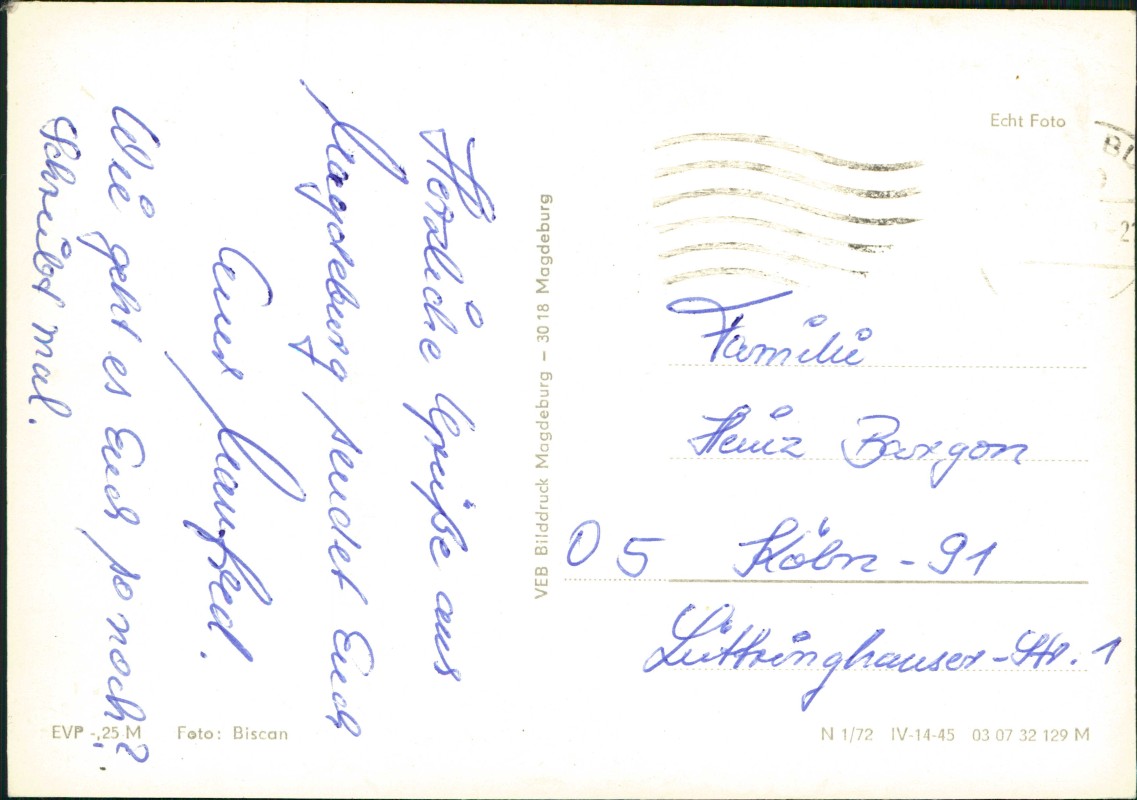 Herzliche Grüße aus
Magdeburg sendet Euch
Euer Manfred.
Wie geht es Euch so noch?
Schreibt mal.
VEB Bilddruck Magdeburg – 3018 Magdeburg
Echt Foto
Familie
Heinz Bargon
05 Köln - 91
Lüttringhauser-Str. 1
EVP -,25 M Foto: Biscan
N 1/72 IV-14-45 03 07 32 129 M